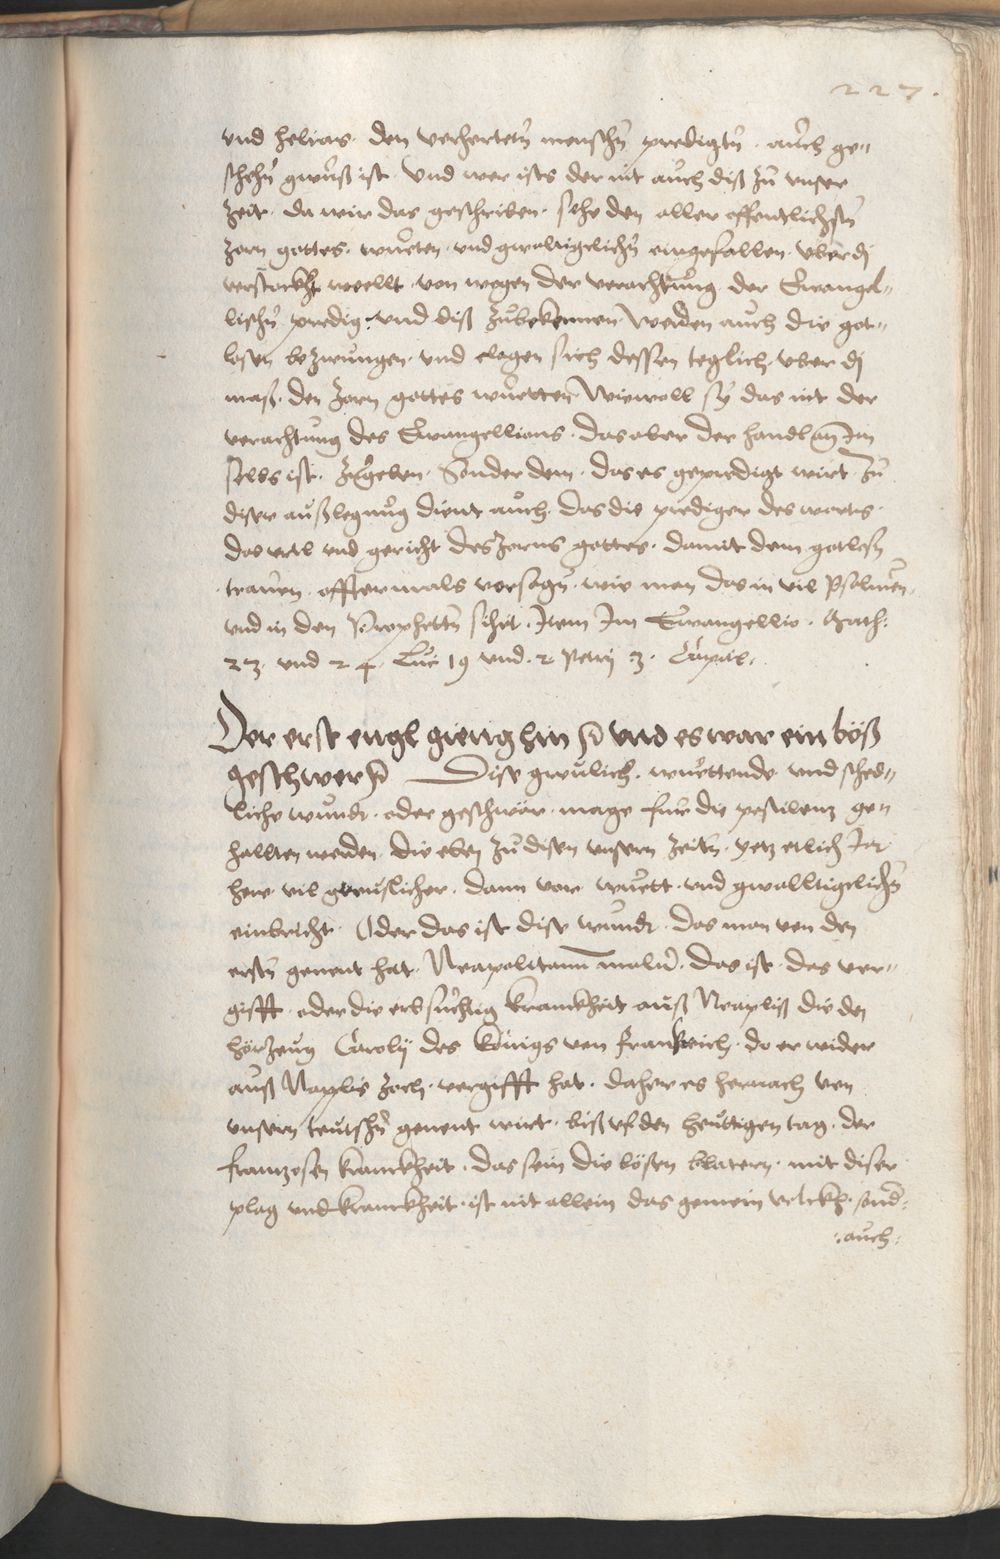 227.
vnd helias den verherteten menschen predigten auch ge=
schehen gwüß ist. Vnd wer ists der nit auch diß zu vnser
Zeit. da wir das geschriben. sehe den aller offentlichsten
Zorn gottes. wüeten vnd gwaltigclichen eingefallen. vber dj
verstockht weellt. von wegen der verachtung der Ewangel=
lischen predig. Vnd diß zubekennen werden auch die got=
losen bezwungen. vnd clagen sich dessen teglich. vber dj
maß. den Zorn gottes wüetten Wiewoll sy das nit der
verachtung des Ewangellions. das aber der handl an Im
selbs ist. zugeben. Sonder dem. das es gepredigt wirt. Zu
diser außlegung dient auch. das die prediger des worts.
das vrtl vnd gericht des Zorns gottes. damit dem gotlosen
trauen. offtermals vorsagen. wie man das in vil Psalmen.
vnd in den Propheten sihet. Item Im Ewangellio. Math:
23. vnd 24. Luc 19 vnd. 2 Petrj 3. Capitl.
Der erst engl gieng hin vnd es war ein böß
geschwer Dise grwulich. wüettende vnd sched=
liche wundt. oder geschwär. mage für die pestilenz ge=
hallten werden. die eben zu disen vnsern Zeiten. yetz etlich Jar
here vil greuslicher. dann vor wüett. vnd gwalltigclichen
einbricht. Oder das ist dise wundt. das man von den
ersten genent hat. Neapolitanum malum. das ist. das ver=
gifft. oder die erbsuchtig kranckheit auß Neaplis die den
hörzeug Carolij des Königs von franckreich. do er wider
auß Naplis Zoch. vergifft hat. daher es hernach von
vnsern teutschen genent wirt. biß vf den heuttigen tag. der
frantzosen kranckheit. das sein die bösen blatern. mit diser
plag vnd kranckheit. ist nit allein das gemein volckh. sond:
:auch: